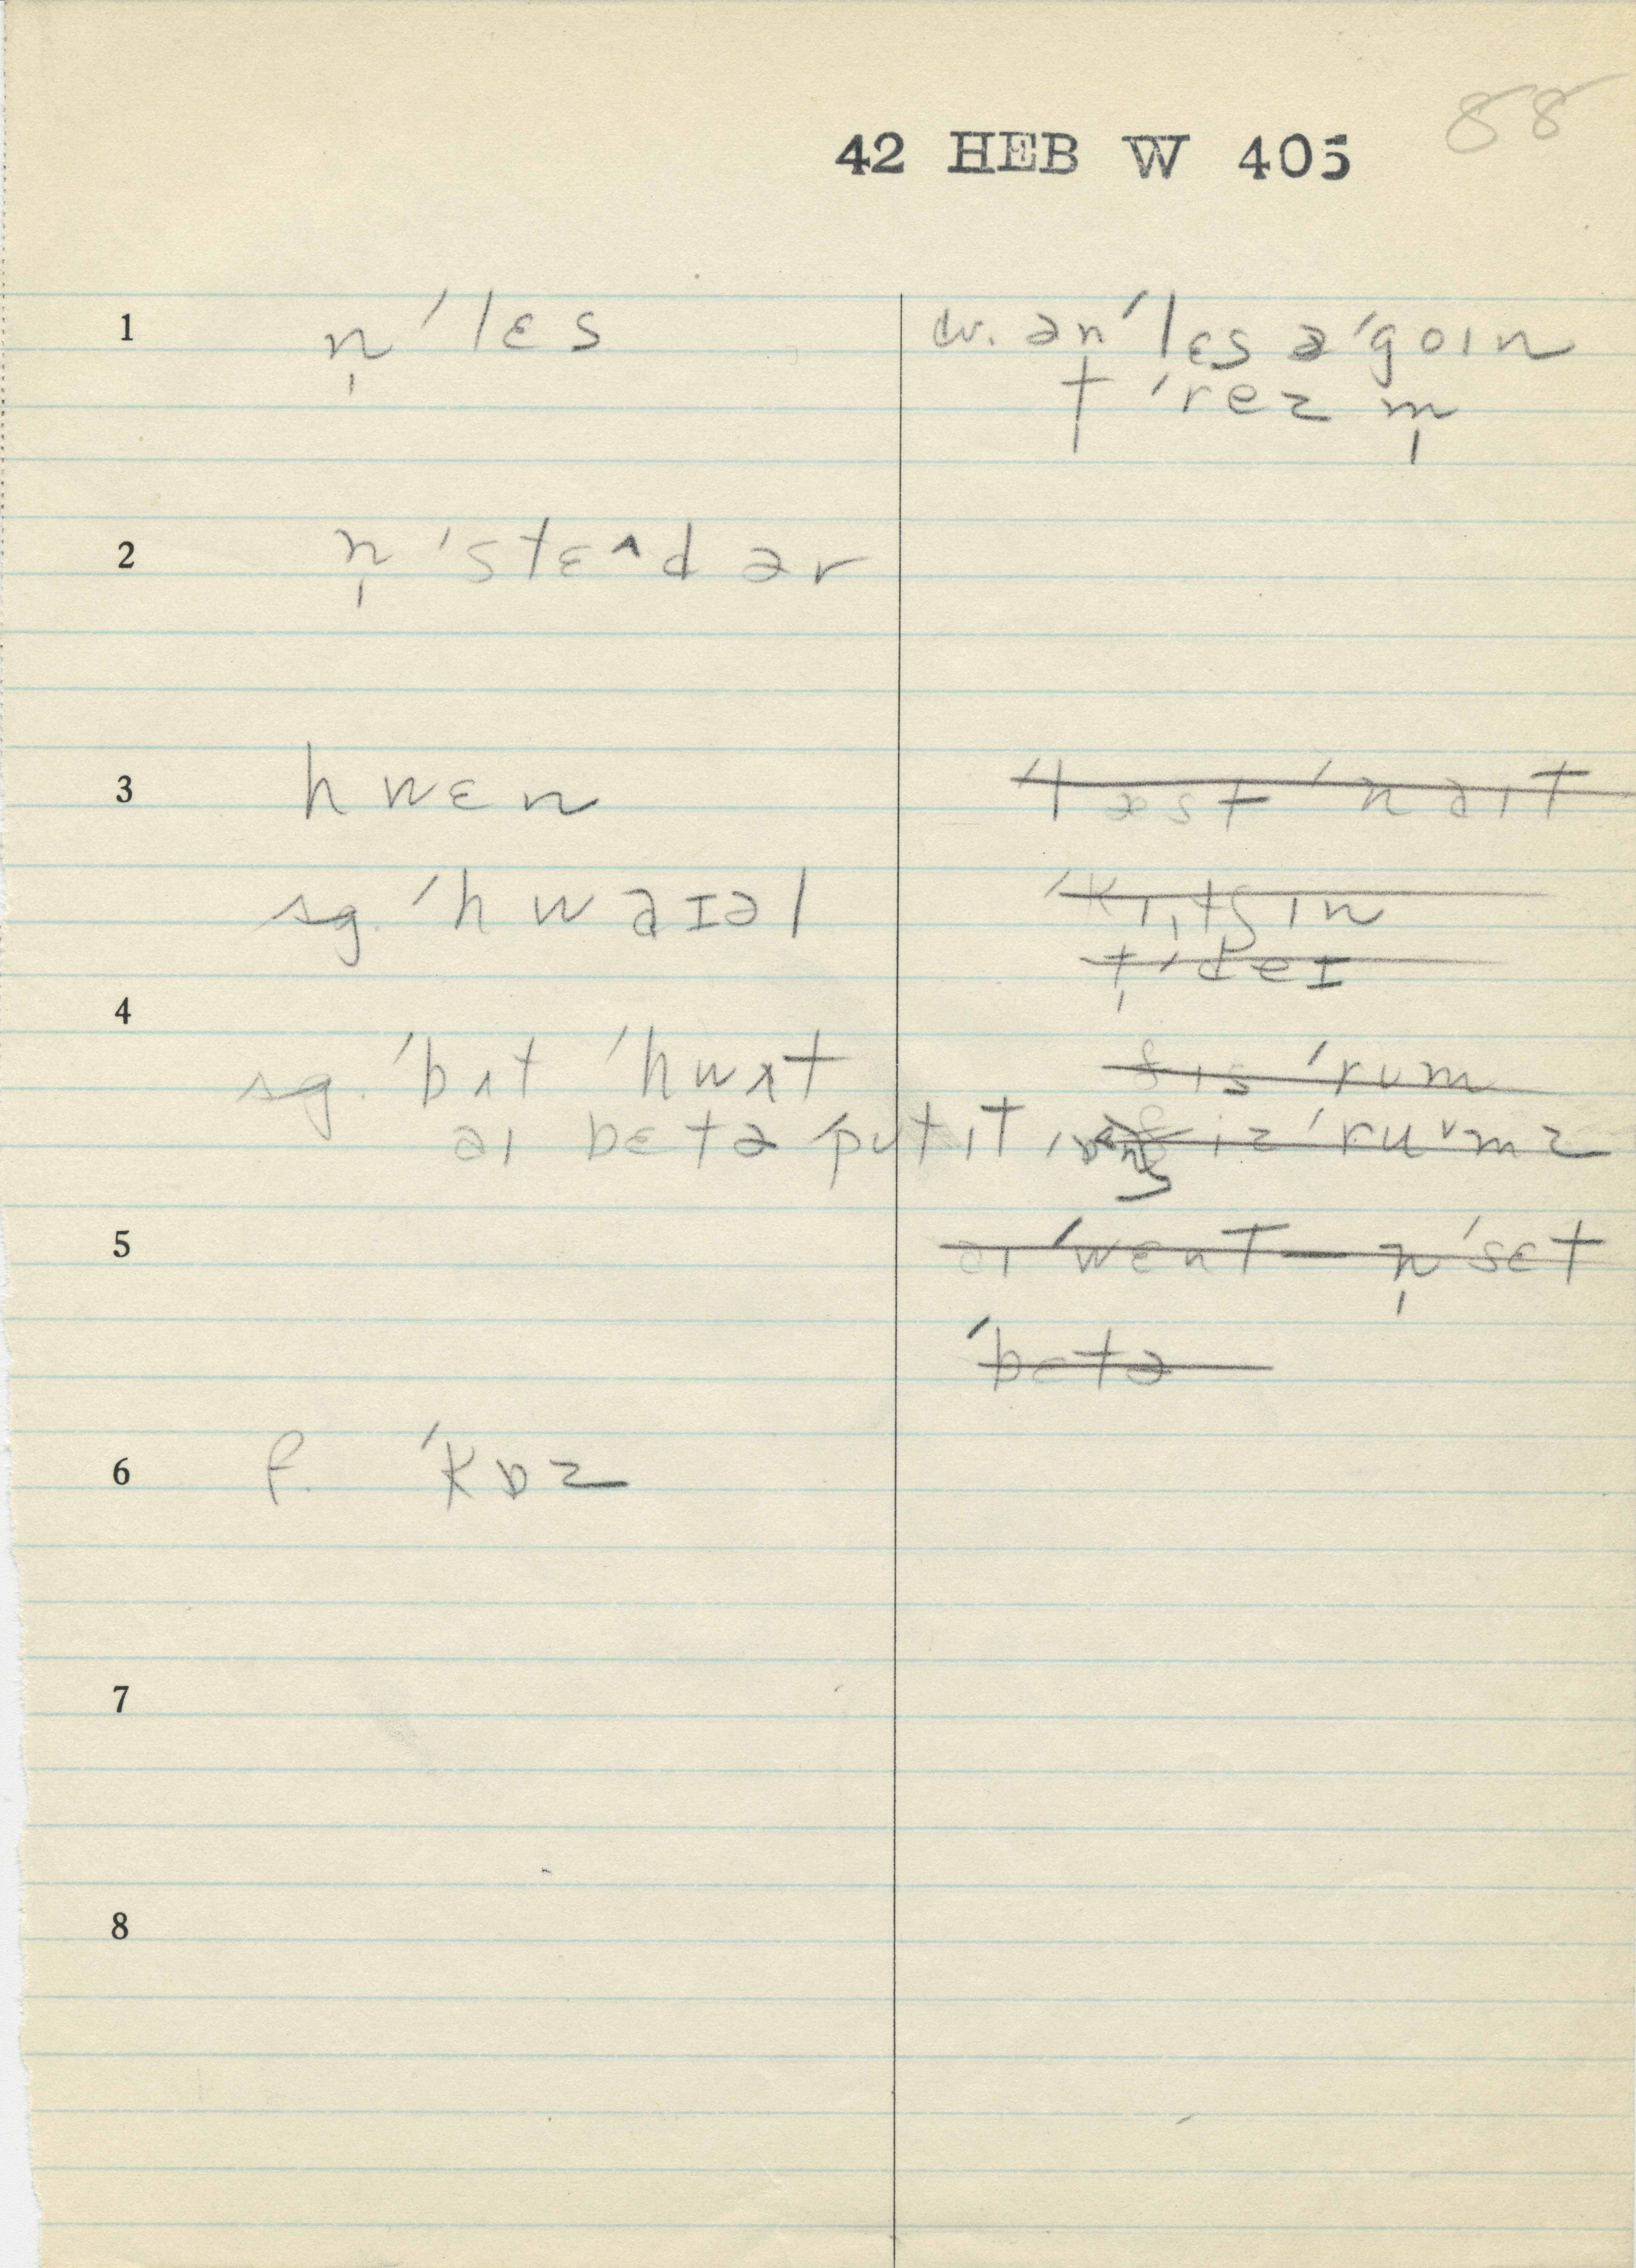 88
42 HEB W 405
1 n̩ ˈlɛs
cv. ən ˈlɛs ə ˈgoɪn
t ˈrez m̩
2 n̩ ˈstɛ^d ər
3 hwɛn
ˈlæst ˈnaɪt
sg. ˈhwaɪəl
ˈkɪ,tʃɪn
t̩ ˈdeɪ
4
sg. ˈbʌt ˈhwʌt
ðɪs ˈrum
aɪ bɛtə put ɪt
ðiz ˈruᵛmz
5
aɪ ˈwɛnt — n̩ ˈsɛt
ˈbɛtə
6 f. ˈkɒz
7
8